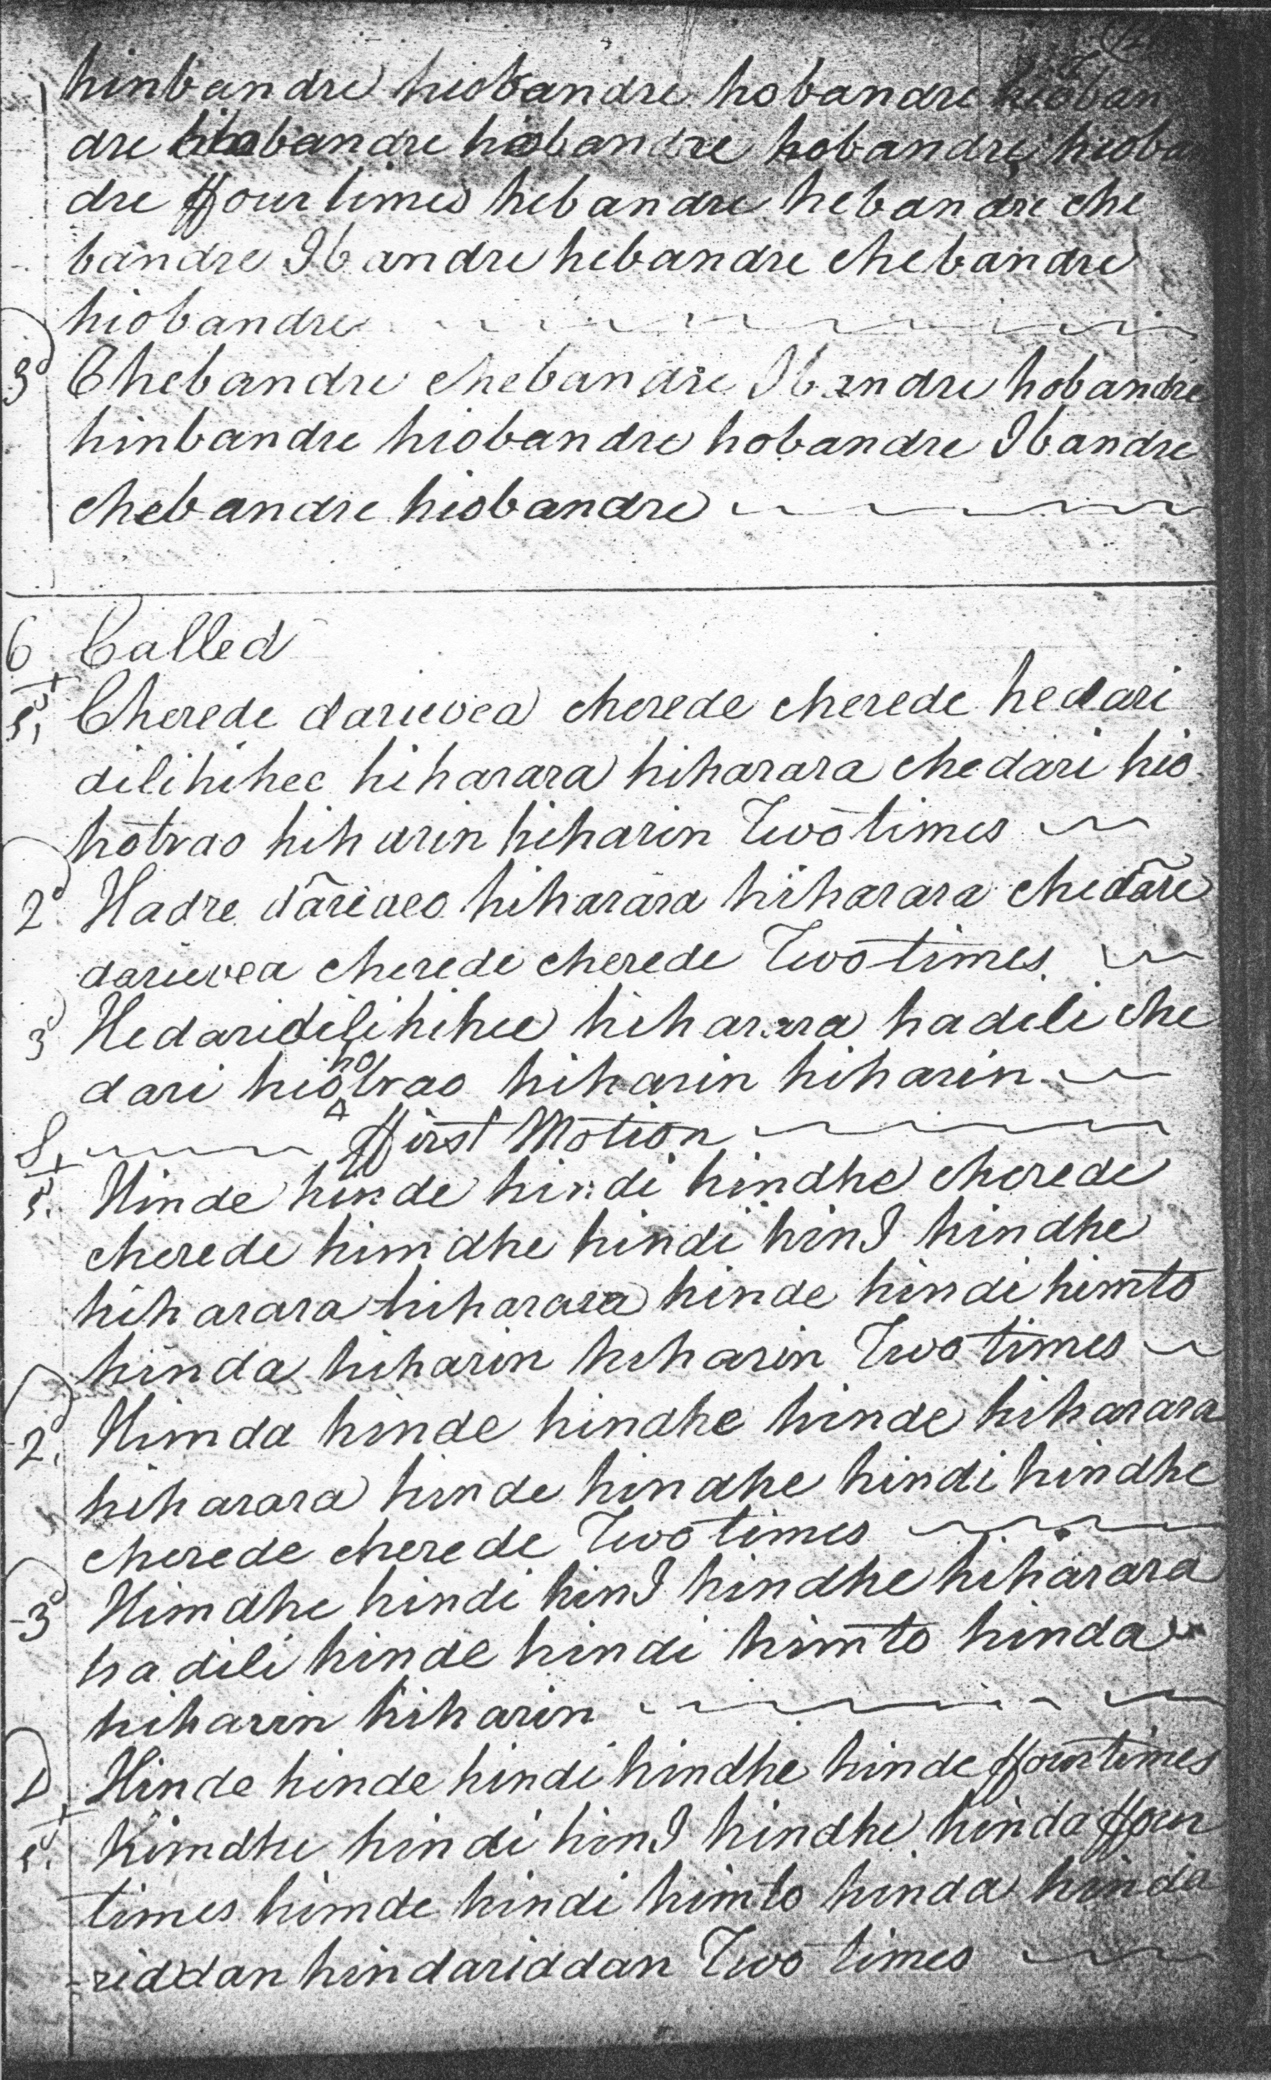 hinbandre hiobandre hobandre hioban
dre hiobandre hiobandre hobandre hioban
dre ffour times hebandre hebandre che
bandre Ibandre hebandre chebandre
hiobandre
3d Chebandre chebandre Ibandre hobandre
hinbandre hiobandre hobandre Ibandre
chebandre hiobandre
6 Called
1st Cherede darievea cherede cherede hedari
dilihihee hiharara hiharara chedari hio
hotrao hiharin hiharin Two times
2d Hadre darieveo hiharara hiharara chedare
darievea cherede cherede Two times
3d Hedaridilihihee hiharara hadili che
dari hiohotrao hiharin hiharin
S. ffirst Motion
1st Hinde hinde hindi hindhe cherede
cherede himdhe hindi hinI hindhe
hiharara hiharara hinde hindi himto
hinda hiharin hiharin Two times
2d Himda hinde hindhe hinde hiharara
hiharara hinde hindhe hindi hindhe
cherede cherede Two times
3d Himdhe hindi hinI hindhe hiharara
hadili hinde hindi himto hinda
hiharin hiharin
D Hinde hinde hindi hindhe hinde ffour times
1st Himdhe hindi hinI hindhe hinda ffour
times himde hindi himto hinda hinda
riddan hindariddan Two times